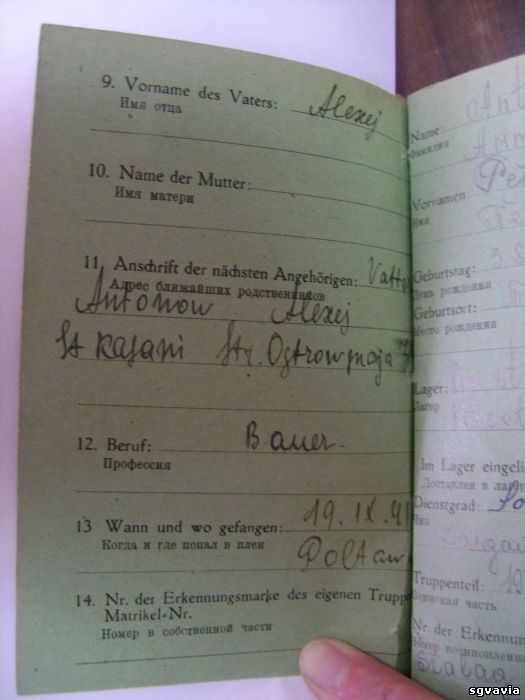 9. Vorname des Vaters: Alexej
Имя отца
10. Name der Mutter:
Имя матери
11. Anschrift der nächsten Angehörigen:
Адрес ближайших родственников
Antonow Alexej
St Kasani Str.
12. Beruf: Bauer
Профессия
13 Wann und wo gefangen: 19. IX. 41
Когда и где попал в плен
Poltaw
14. Nr. der Erkennungsmarke des eigenen Trupp
Matrikel-Nr.
Номер в собственной части
Name:
Фамилия
Vornamen
Имя
Geburtstag:
День рождения
Geburtsort:
Место рождения
Lager:
Лагер
Im Lager eingeli
Доставлен в лаг
Dienstgrad:
Чин
Truppenteil:
Воинская часть
Nr. der Erkennun
Stalag
sgvavia